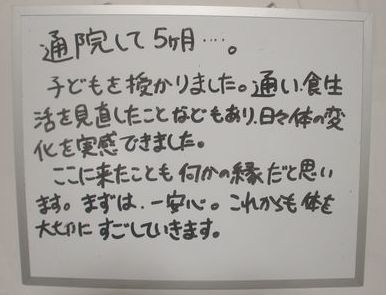 通院して5ヶ月‥‥。
子どもを授かりました。通い、食生
活を見直したことなどもあり、日々体の変
化を実感できました。
ここに来たことも何かの縁だと思い
ます。まずは、一安心。これからも体を
大切にすごしていきます。